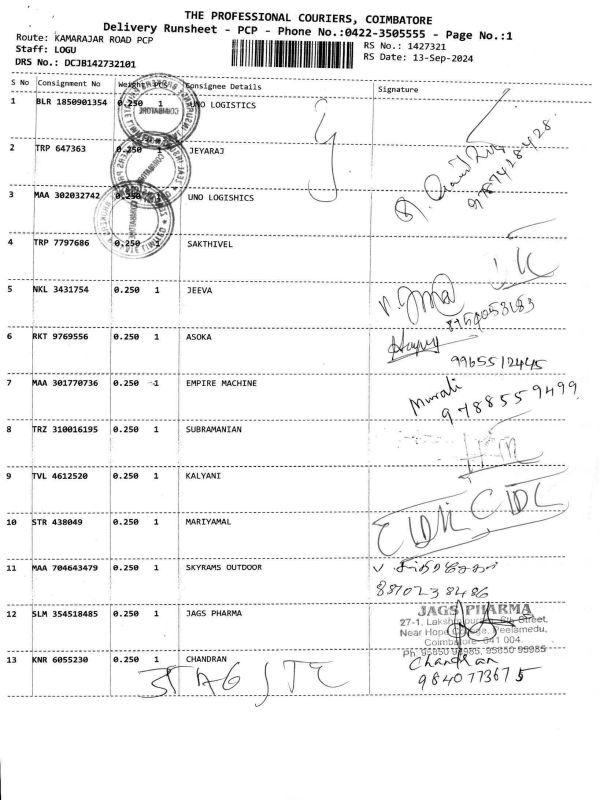 THE PROFESSIONAL COURIERS, COIMBATORE
Delivery Runsheet - PCP - Phone No.:0422-3505555 - Page No.:1
Route: KAMARAJAR ROAD PCP
Staff: LOGU
DRS No.: DCJB142732101
RS No.: 1427321
RS Date: 13-Sep-2024
S No Consignment No Weight PCS Consignee Details Signature
1 BLR 1850901354 0.250 1 UNO LOGISTICS
2 TRP 647363 0.250 1 JEYARAJ
9787428428
3 MAA 302032742 0.250 UNO LOGISHICS
4 TRP 7797686 0.250 1 SAKTHIVEL
5 NKL 3431754 0.250 1 JEEVA
6 RKT 9769556 0.250 1 ASOKA
9965512445
7 MAA 301770736 0.250 1 EMPIRE MACHINE
Murali
9788559499
8 TRZ 310016195 0.250 1 SUBRAMANIAN
9 TVL 4612520 0.250 1 KALYANI
10 STR 438049 0.250 1 MARIYAMAL
11 MAA 704643479 0.250 1 SKYRAMS OUTDOOR
8870238486
12 SLM 354518485 0.250 1 JAGS PHARMA
JAGS PHARMA
27-1, Street,
Near Hope College, Peelamedu,
Coimbatore- 641 004.
13 KNR 6055230 0.250 1 CHANDRAN
Chandran
9840773675